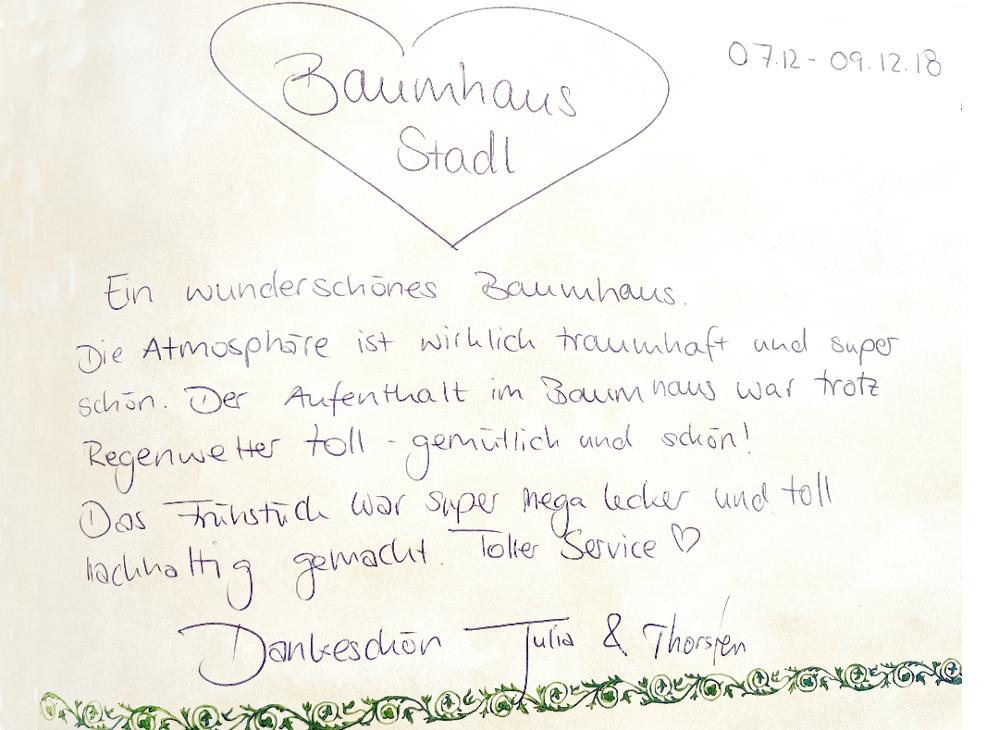 Baumhaus
Stadl
07.12 - 09.12.18
Ein wunderschönes Baumhaus.
Die Atmosphäre ist wirklich traumhaft und super
schön. Der Aufenthalt im Baumhaus war trotz
Regenwetter toll - gemütlich und schön!
Das Frühstück war super mega lecker und toll
nachhaltig gemacht. Toller Service ♡
Dankeschön Julia & Thorsten